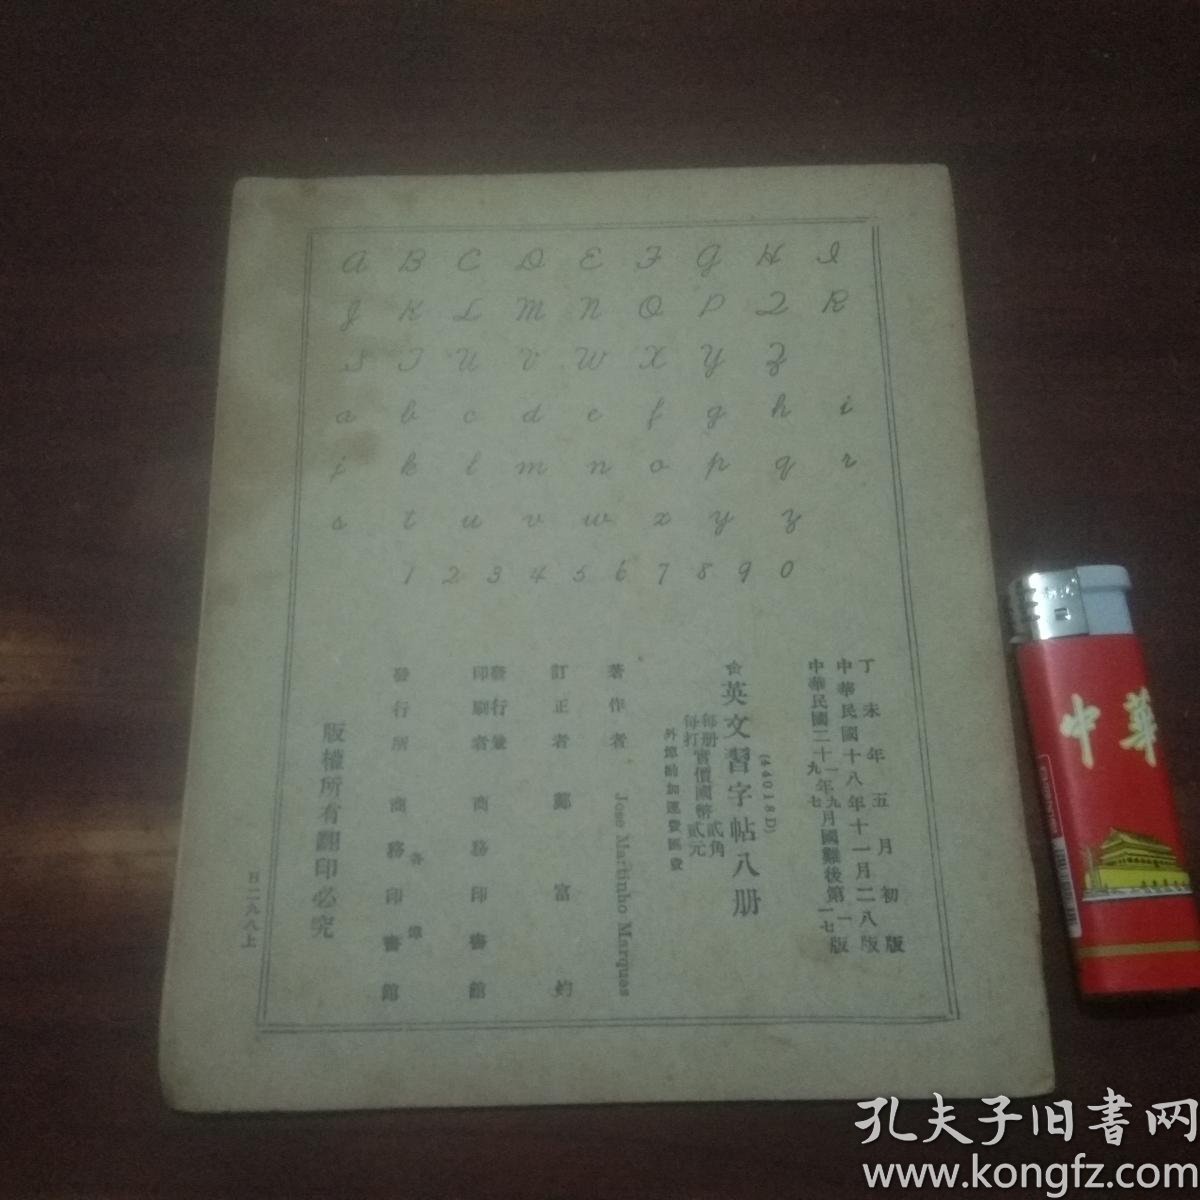 A B C D E F G H I
J K L M N O P Q R
S T U V W X Y Z
a b c d e f g h i
j k l m n o p q r
s t u v w x y z
1 2 3 4 5 6 7 8 9 0
丁未年五月初版
中華民國十八年十一月二八版
中華民國二十一年九月國難後第一版
九七
一七
(44018D)
英文習字帖八册
每册實價國幣貳角
每打
貳元
外埠酌加運費匯費
著作者 Jose Martinho Marques
訂正者 鄺富灼
發行兼
印刷者 商務印書館
各埠
發行所 商務印書館
版權所有翻印必究
中華
孔夫子旧書网
www.kongfz.com